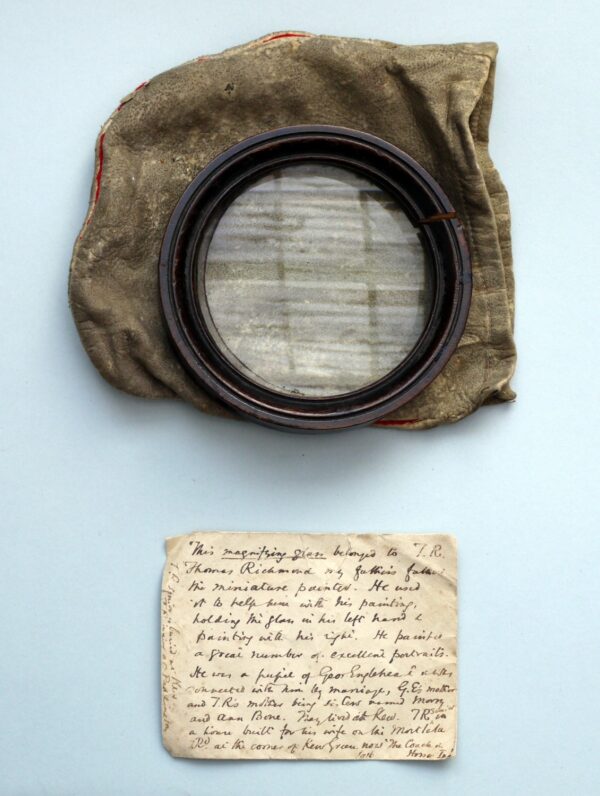 "This magnifying glass belonged to T.R.
Thomas Richmond my father's father
the miniature painter. He used
it to help him with his painting,
holding the glass in his left hand &
painting with his right. He painted
a great number of excellent portraits.
He was a pupil of Geor Engleheart &
connected with him by marriage, G.E's mother
and T.R's mother being sisters named Mary
and Ann Bone. They lived at Kew. T.R. in
a house built for his wife on the Mortlake
Rd at the corner of Kew Green now "The Coach &
Horses Inn"